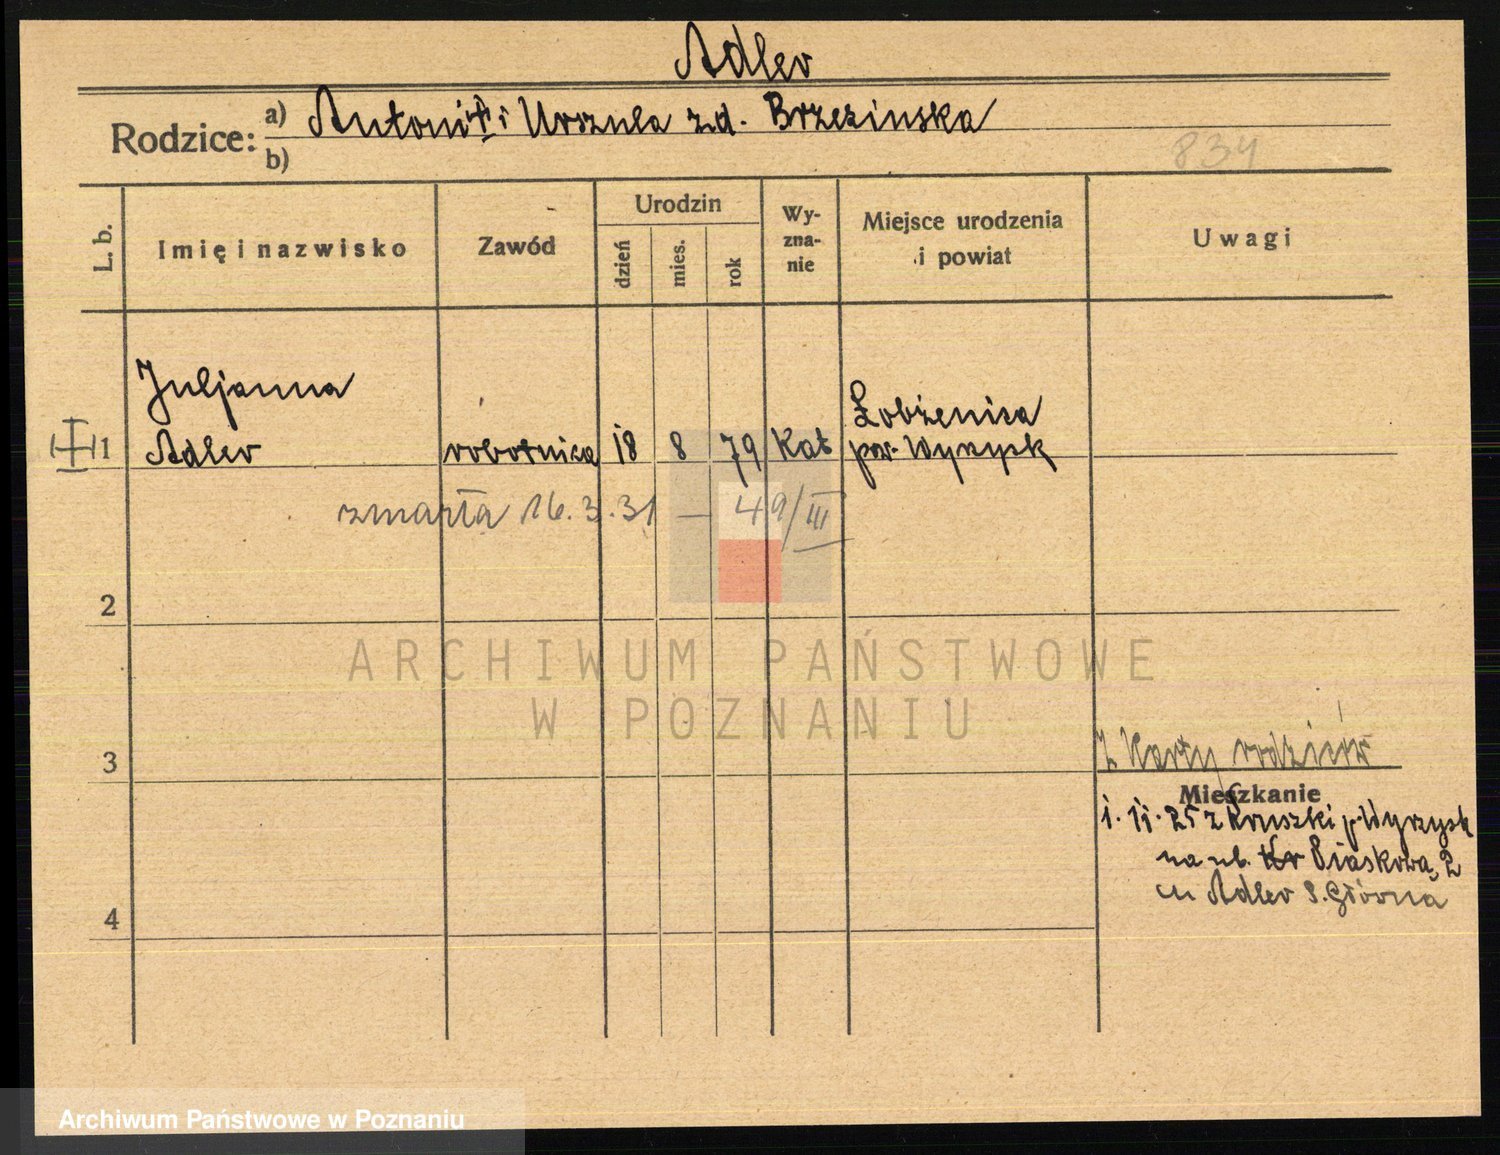 Adler
Rodzice: a) Antoni † i Urszula zd. Brzezinska
b)
834
L. b.
Imię i nazwisko
Zawód
Urodzin
dzień
mies.
rok
Wy-
zna-
nie
Miejsce urodzenia
i powiat
Uwagi
1
Juljanna
Adler
robotnica
18
8
79
Kat
Łobżenica
pow. Wyrzysk
zmarła 16.3.31 — 49/III
2
ARCHIWUM PAŃSTWOWE
W POZNANIU
3
Z Karty rodziców
Mieszkanie
1.11.25 z Kruszki p. Wyrzysk
na ul. Piaskowa, 2
Adler S. Główna
4
Archiwum Państwowe w Poznaniu